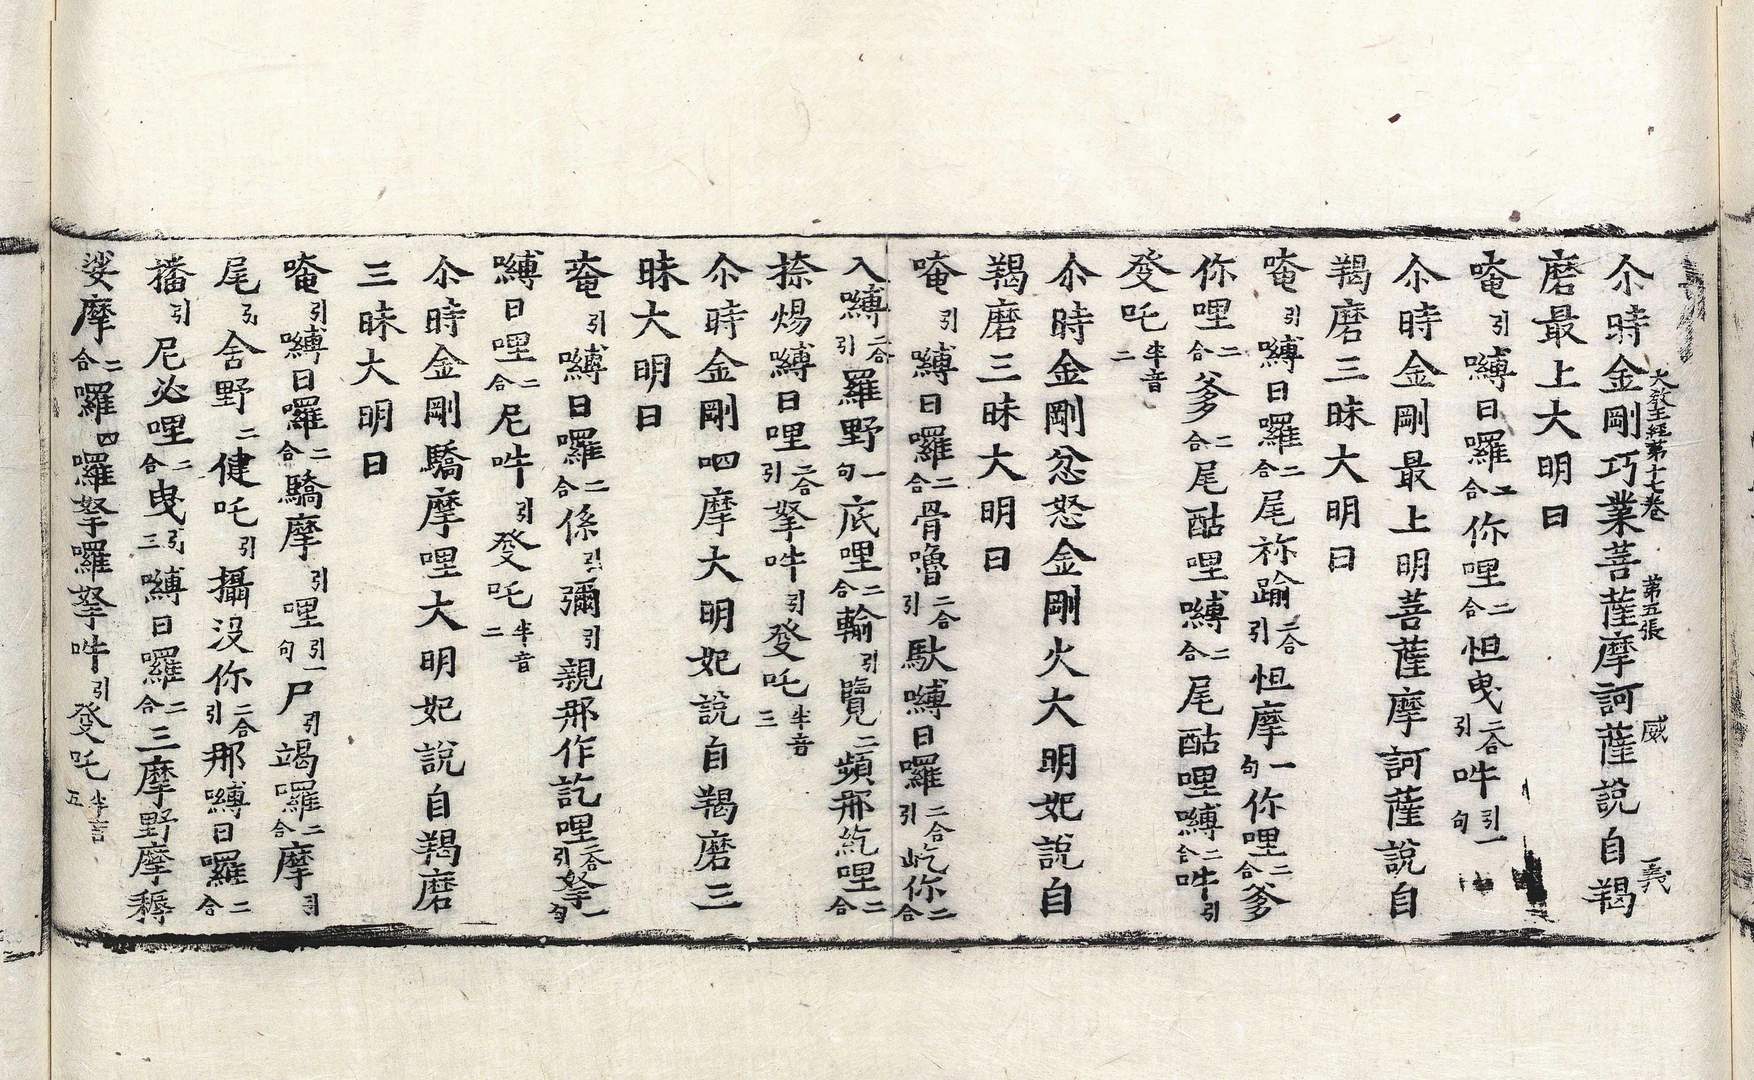 大教王經第十七卷 第五張 威 義
尒時金剛巧業菩薩摩訶薩說自羯
磨最上大明曰
唵引嚩日囉二合你哩二合怛曳二合引吽引一句
尒時金剛最上明菩薩摩訶薩說自
羯磨三昧大明曰
唵引嚩日囉二合尾祢踰二合引怛摩一句你哩二合爹
你哩二合爹二合尾酤哩嚩二合尾酤哩嚩二合吽引
發吒半音二
尒時金剛忿怒金剛火大明妃說自
羯磨三昧大明曰
唵引嚩日囉二合骨嚕二合引馱嚩日囉二合引屹你二合
入嚩二合引羅野一句底哩二合輸引覽二頻那紇哩二合
捺煬嚩日哩二合引拏吽引發吒半音三
尒時金剛呬摩大明妃說自羯磨三
昧大明曰
唵引嚩日囉二合係引彌引親那作訖哩二合引拏一句
嚩日哩二合尼吽引發吒半音二
尒時金剛驕摩哩大明妃說自羯磨
三昧大明曰
唵引嚩日囉二合驕摩引哩引一句尸引竭囉二合摩引
尾引舍野二健吒引攝沒你二合引那嚩日囉二合
播引尼必哩二合曳引三嚩日囉二合三摩野摩耨
娑摩二合囉四囉拏囉拏吽引發吒半音五